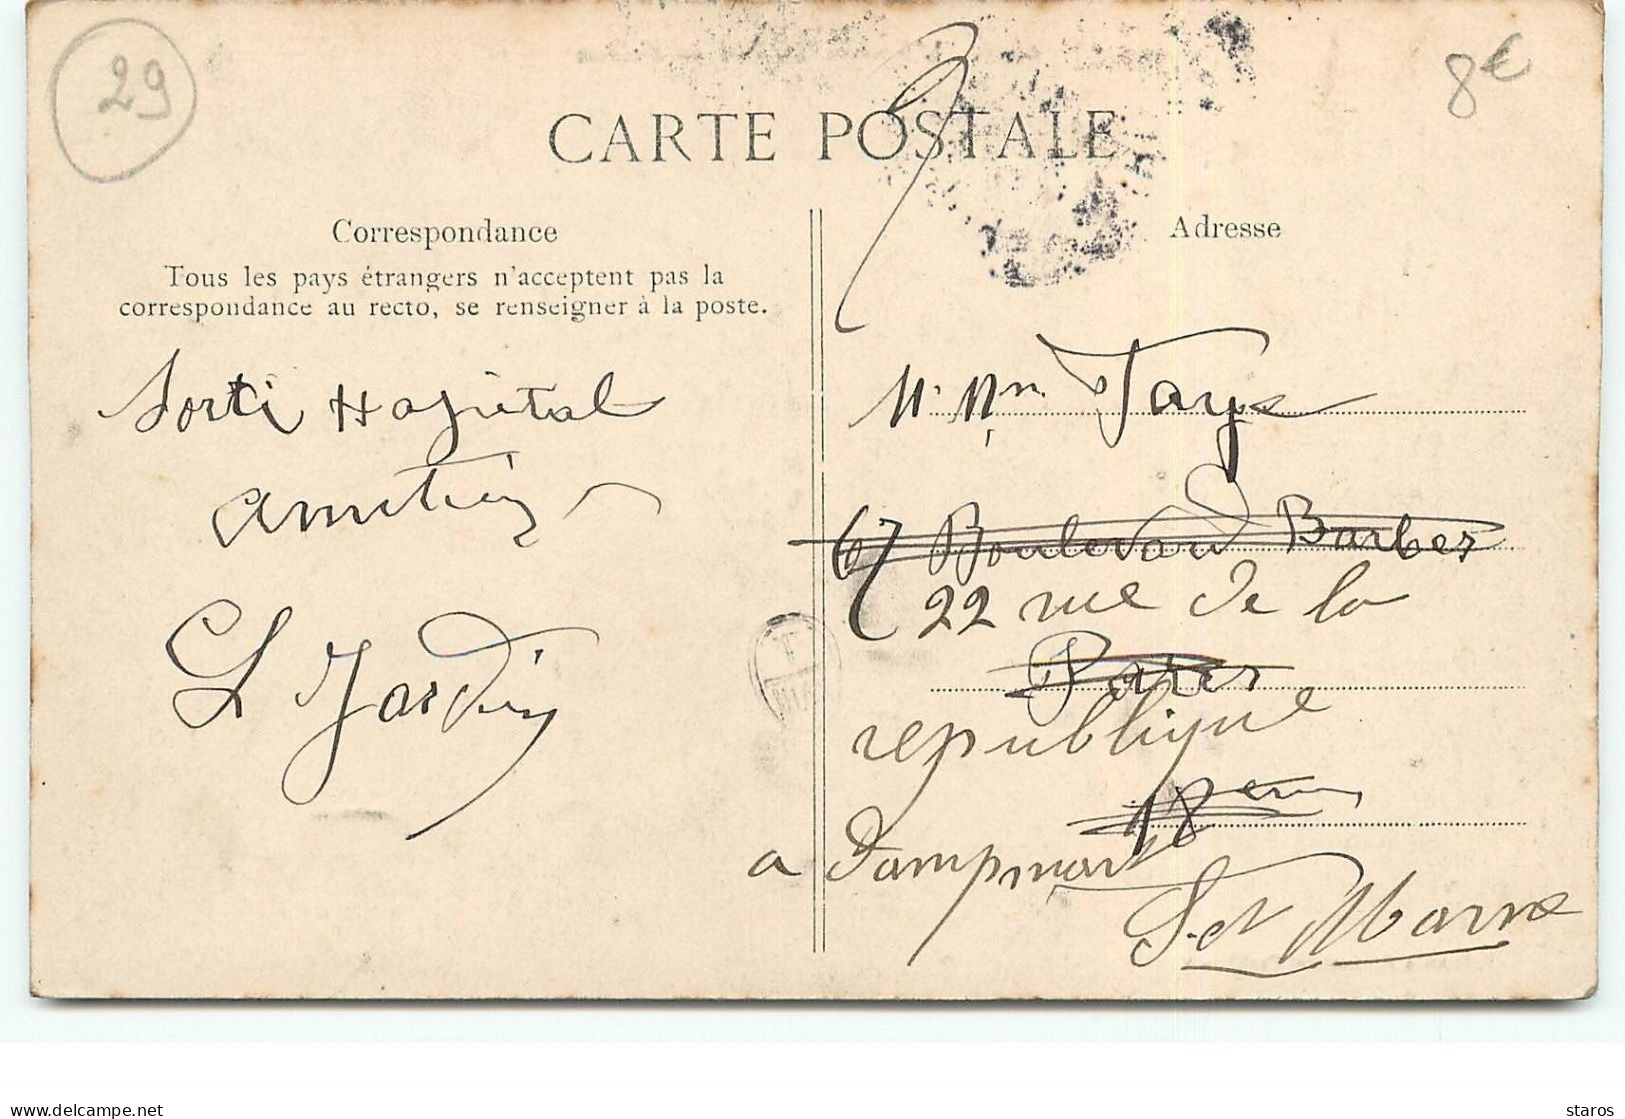 29
8€
CARTE POSTALE
Correspondance
Tous les pays étrangers n'acceptent pas la
correspondance au recto, se renseigner à la poste.
Sorti Hopital
Amitié
L Jardin
Adresse
67 Boulevard Barbes
22 rue de la
Paris
republique
18em
a Dampmart
S. et Marne
delcampe.net
staros